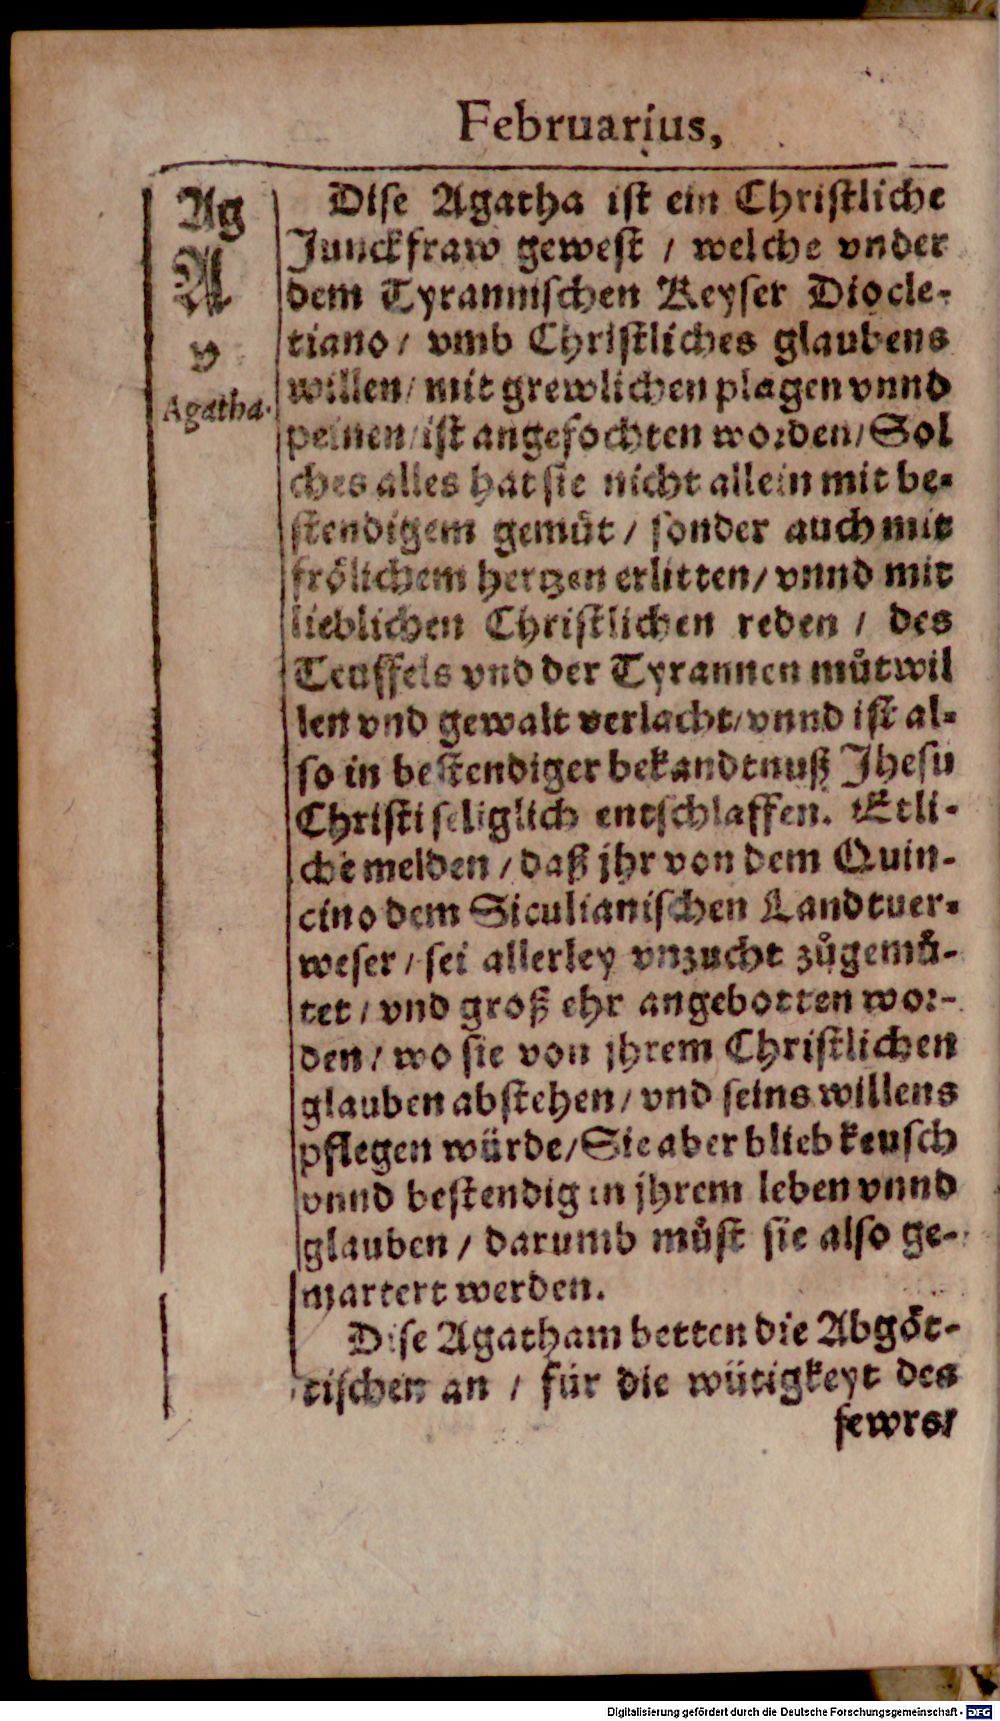 Februarius,
Ag
A
v
Agatha.
Dise Agatha ist ein Christliche
Junckfraw gewest / welche vnder
dem Tyrannischen Keyser Diocle-
tiano / vmb Christliches glaubens
willen / mit grewlichen plagen vnnd
peinen / ist angefochten worden / Sol
ches alles hat sie nicht allein mit be-
stendigem gemuͤt / sonder auch mit
froͤlichem hertzen erlitten / vnnd mit
lieblichen Christlichen reden / des
Teuffels vnd der Tyrannen muͤtwil
len vnd gewalt verlacht / vnnd ist al-
so in bestendiger bekandtnuß Jhesu
Christi seliglich entschlaffen. Etli-
che melden / daß jhr von dem Quin-
cino dem Siculianischen Landtuer-
weser / sei allerley vnzucht zuͦgemuͦ-
tet / vnd groß ehr angebotten wor-
den / wo sie von jhrem Christlichen
glauben abstehen / vnd seins willens
pflegen würde / Sie aber blieb keusch
vnnd bestendig in jhrem leben vnnd
glauben / darumb muͦst sie also ge-
martert werden.
Dise Agatham betten die Abgoͤt-
tischen an / für die wütigkeyt des
fewrs /
Digitalisierung gefördert durch die Deutsche Forschungsgemeinschaft - DFG